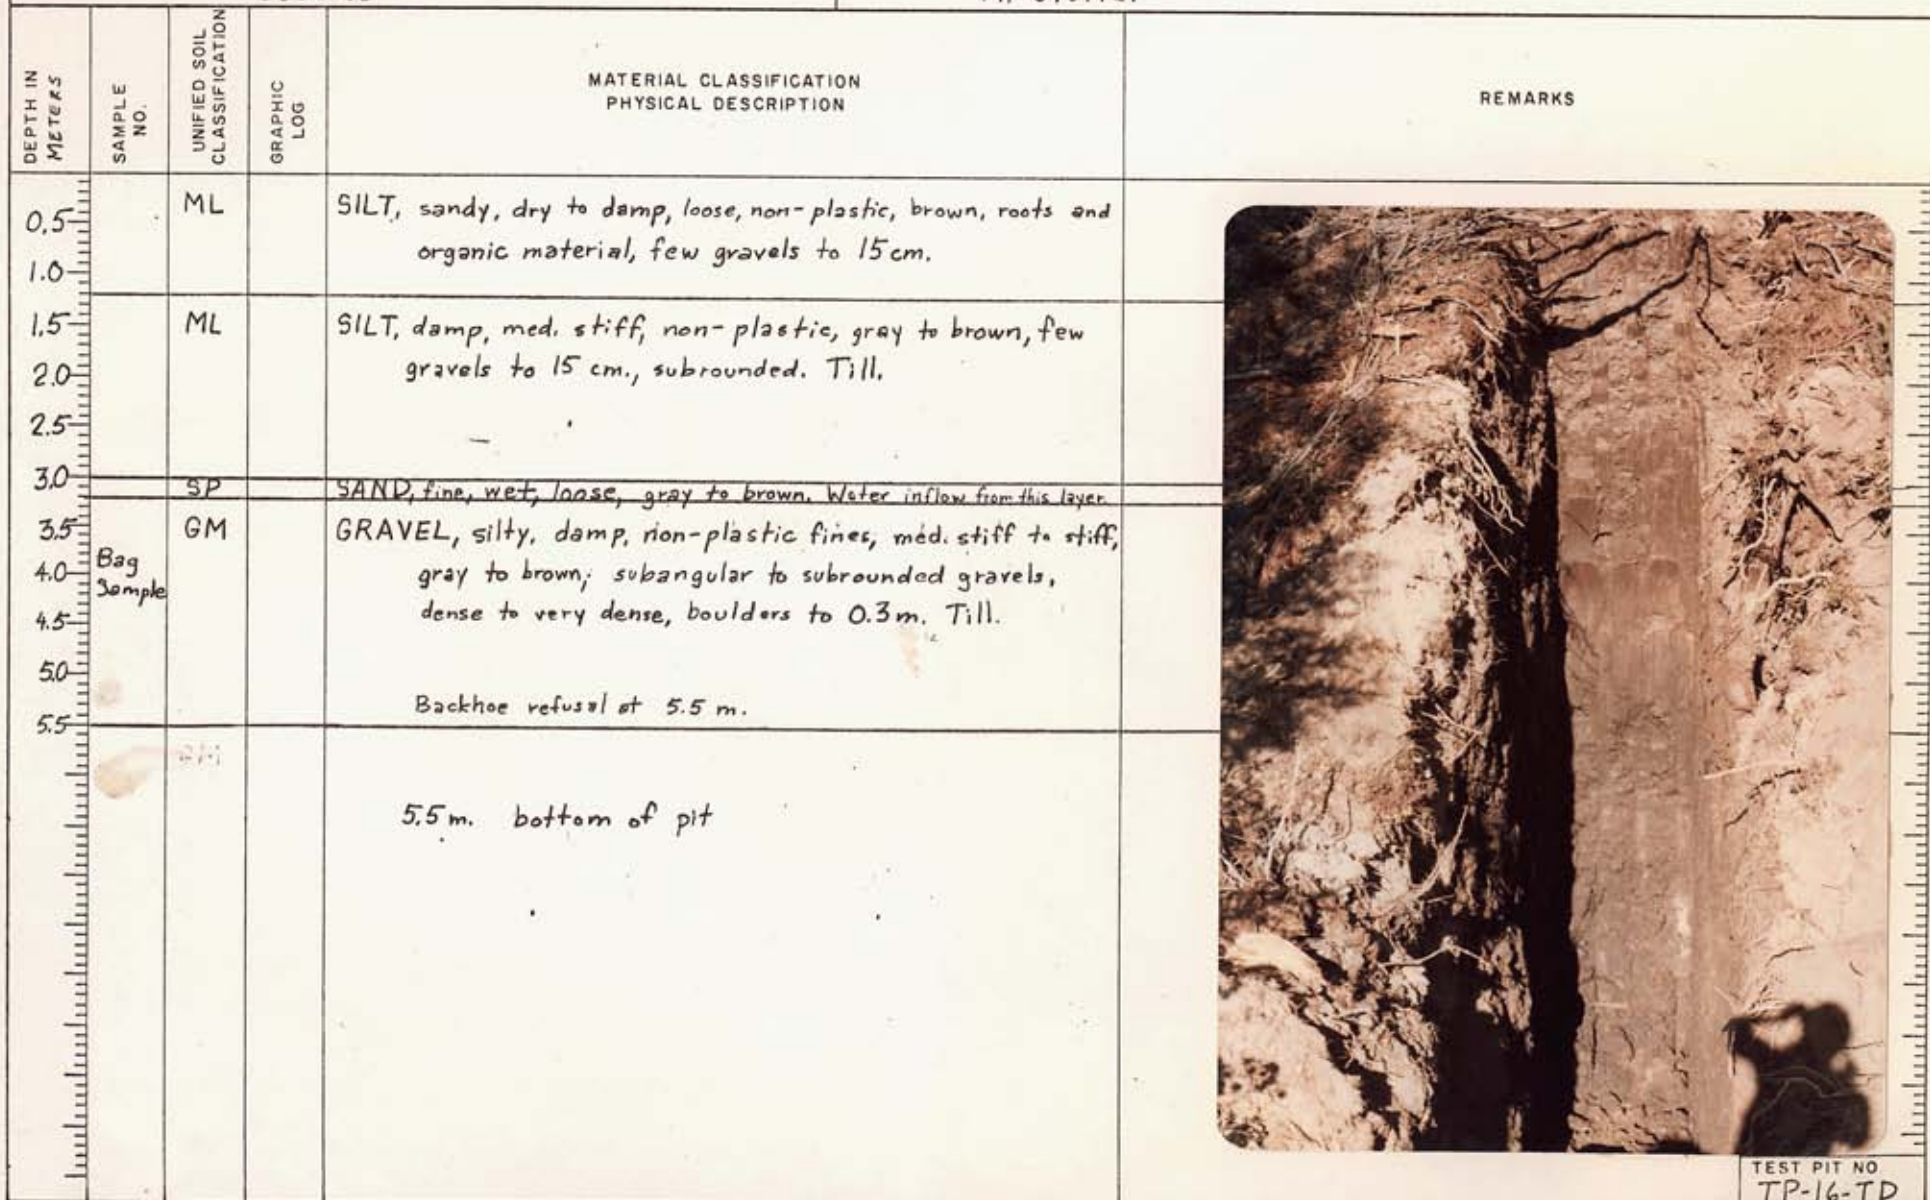 DEPTH IN
METERS
SAMPLE
NO.
UNIFIED SOIL
CLASSIFICATION
GRAPHIC
LOG
MATERIAL CLASSIFICATION
PHYSICAL DESCRIPTION
REMARKS
0.5
1.0
1.5
2.0
2.5
3.0
3.5
4.0
4.5
5.0
5.5
ML
SILT, sandy, dry to damp, loose, non-plastic, brown, roots and
organic material, few gravels to 15 cm.
ML
SILT, damp, med. stiff, non-plastic, gray to brown, few
gravels to 15 cm., subrounded. Till.
SP
SAND, fine, wet, loose, gray to brown. Water inflow from this layer.
Bag
Sample
GM
GRAVEL, silty, damp, non-plastic fines, med. stiff to stiff,
gray to brown; subangular to subrounded gravels,
dense to very dense, boulders to 0.3 m. Till.
Backhoe refusal at 5.5 m.
5.5 m. bottom of pit
TEST PIT NO.
TP-16-TD